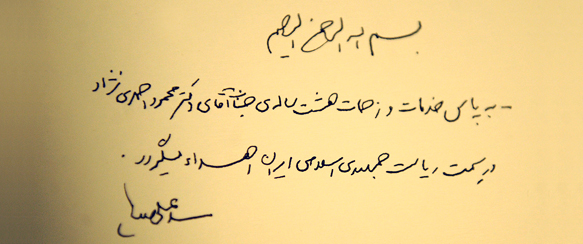 بسم الله الرحمن الرحیم
- به پاس خدمات و زحمات هشت ساله‌ی جناب آقای دکتر محمود احمدی نژاد
در سمت ریاست جمهوری اسلامی ایران اهداء میگردد .
سید علی